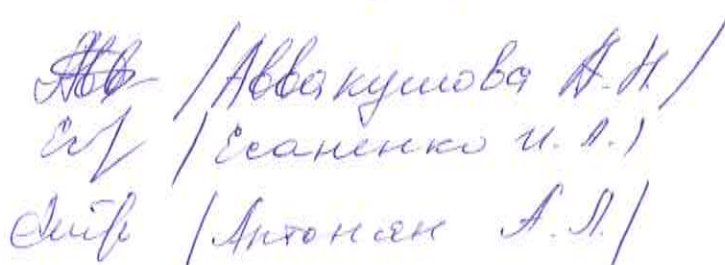 /Аввакумова А.Н./
/Есаненко И.А./
/Антонян А.Л./